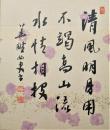 清風明月用
不竭高山流
水情相投